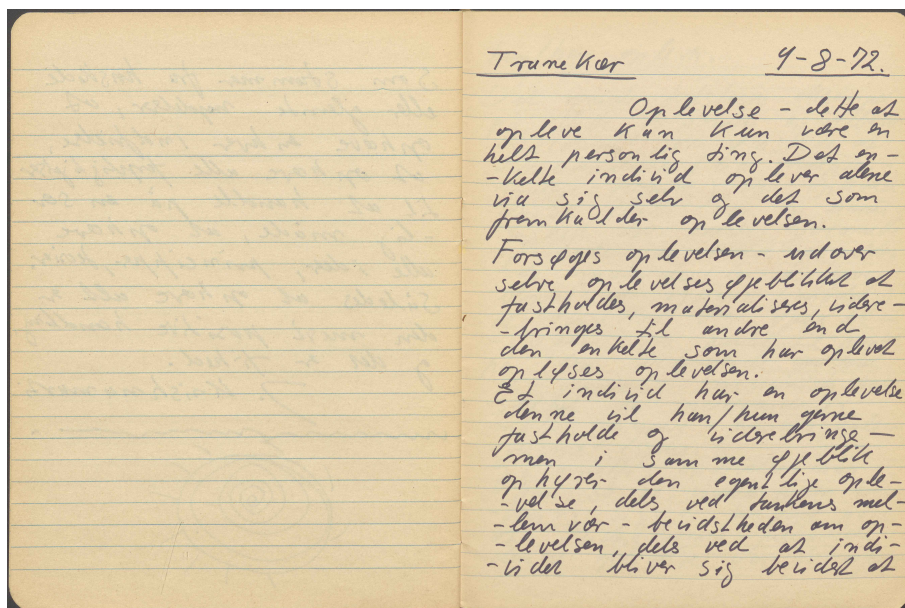 Tranekær 4-8-72.
Oplevelse - dette at
opleve kan kun være en
helt personlig ting. Det en-
-kelte individ oplever alene
via sig selv og det som
fremkalder oplevelsen.
Forsøges oplevelsen - udover
selve oplevelsesøjeblikket at
fastholdes, materialiseres, videre-
-bringes til andre end
den enkelte som har oplevet
opløses oplevelsen.
Et individ har en oplevelse
denne vil han/hun gerne
fastholde og viderebringe -
men i samme øjeblik
ophører den egentlige ople-
-velse, dels ved tankens mel-
-lem vær - bevidstheden om op-
-levelsen, dels ved at indi-
-videt bliver sig bevidst at